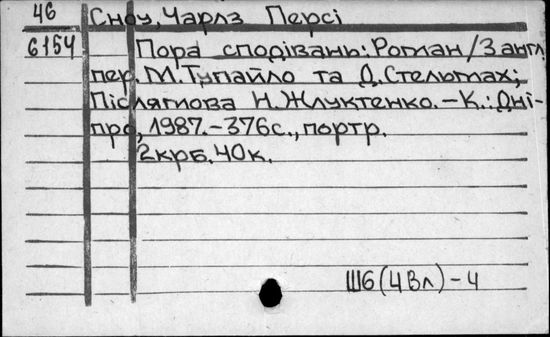 46 Сноу, Чарлз Персі
6154 Пора сподівань: Роман / З англ.
пер. М. Тупайло та Д. Стельмах;
Післямова Н. Жлуктенко. – К.: Дні-
про, 1987. – 376 с., портр.
2 крб. 40 к.
Ш6(4Вл) – 4